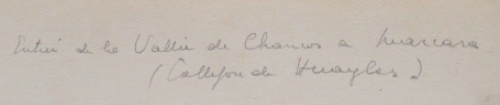 Entrée de la Vallée de Chancos a Marcara
(Callejon de Huaylas)